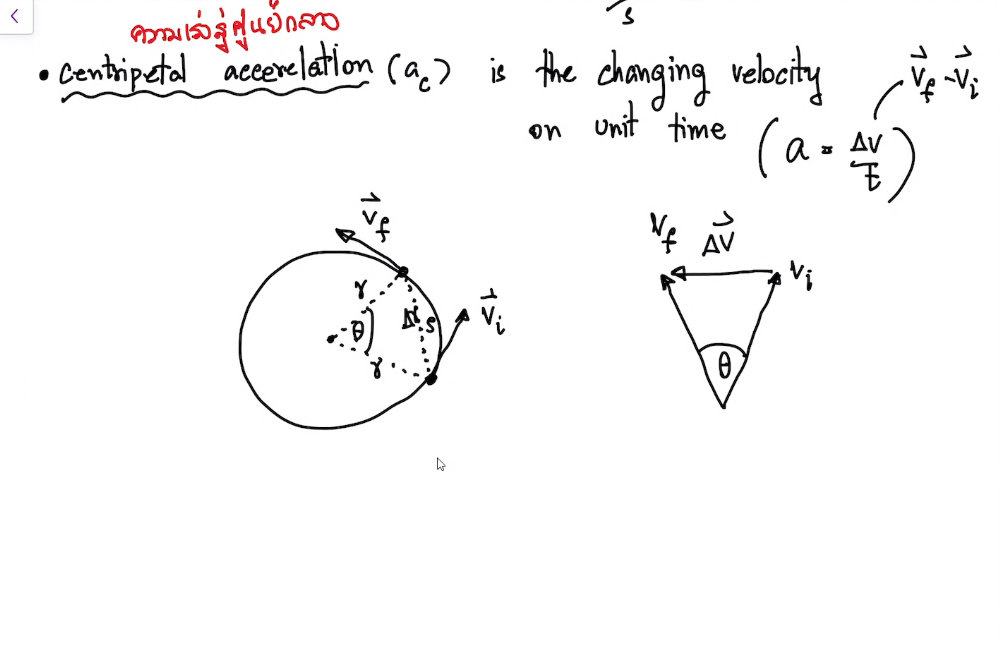 s
ความเร่งสู่ศูนย์กลาง
• centripetal accerelation (a_c) is the changing velocity
on unit time (a = ΔV/t) V⃗_f - V⃗_i
V⃗_f
r
θ
Δr
s
V⃗_i
r
V_f
ΔV⃗
V_i
θ